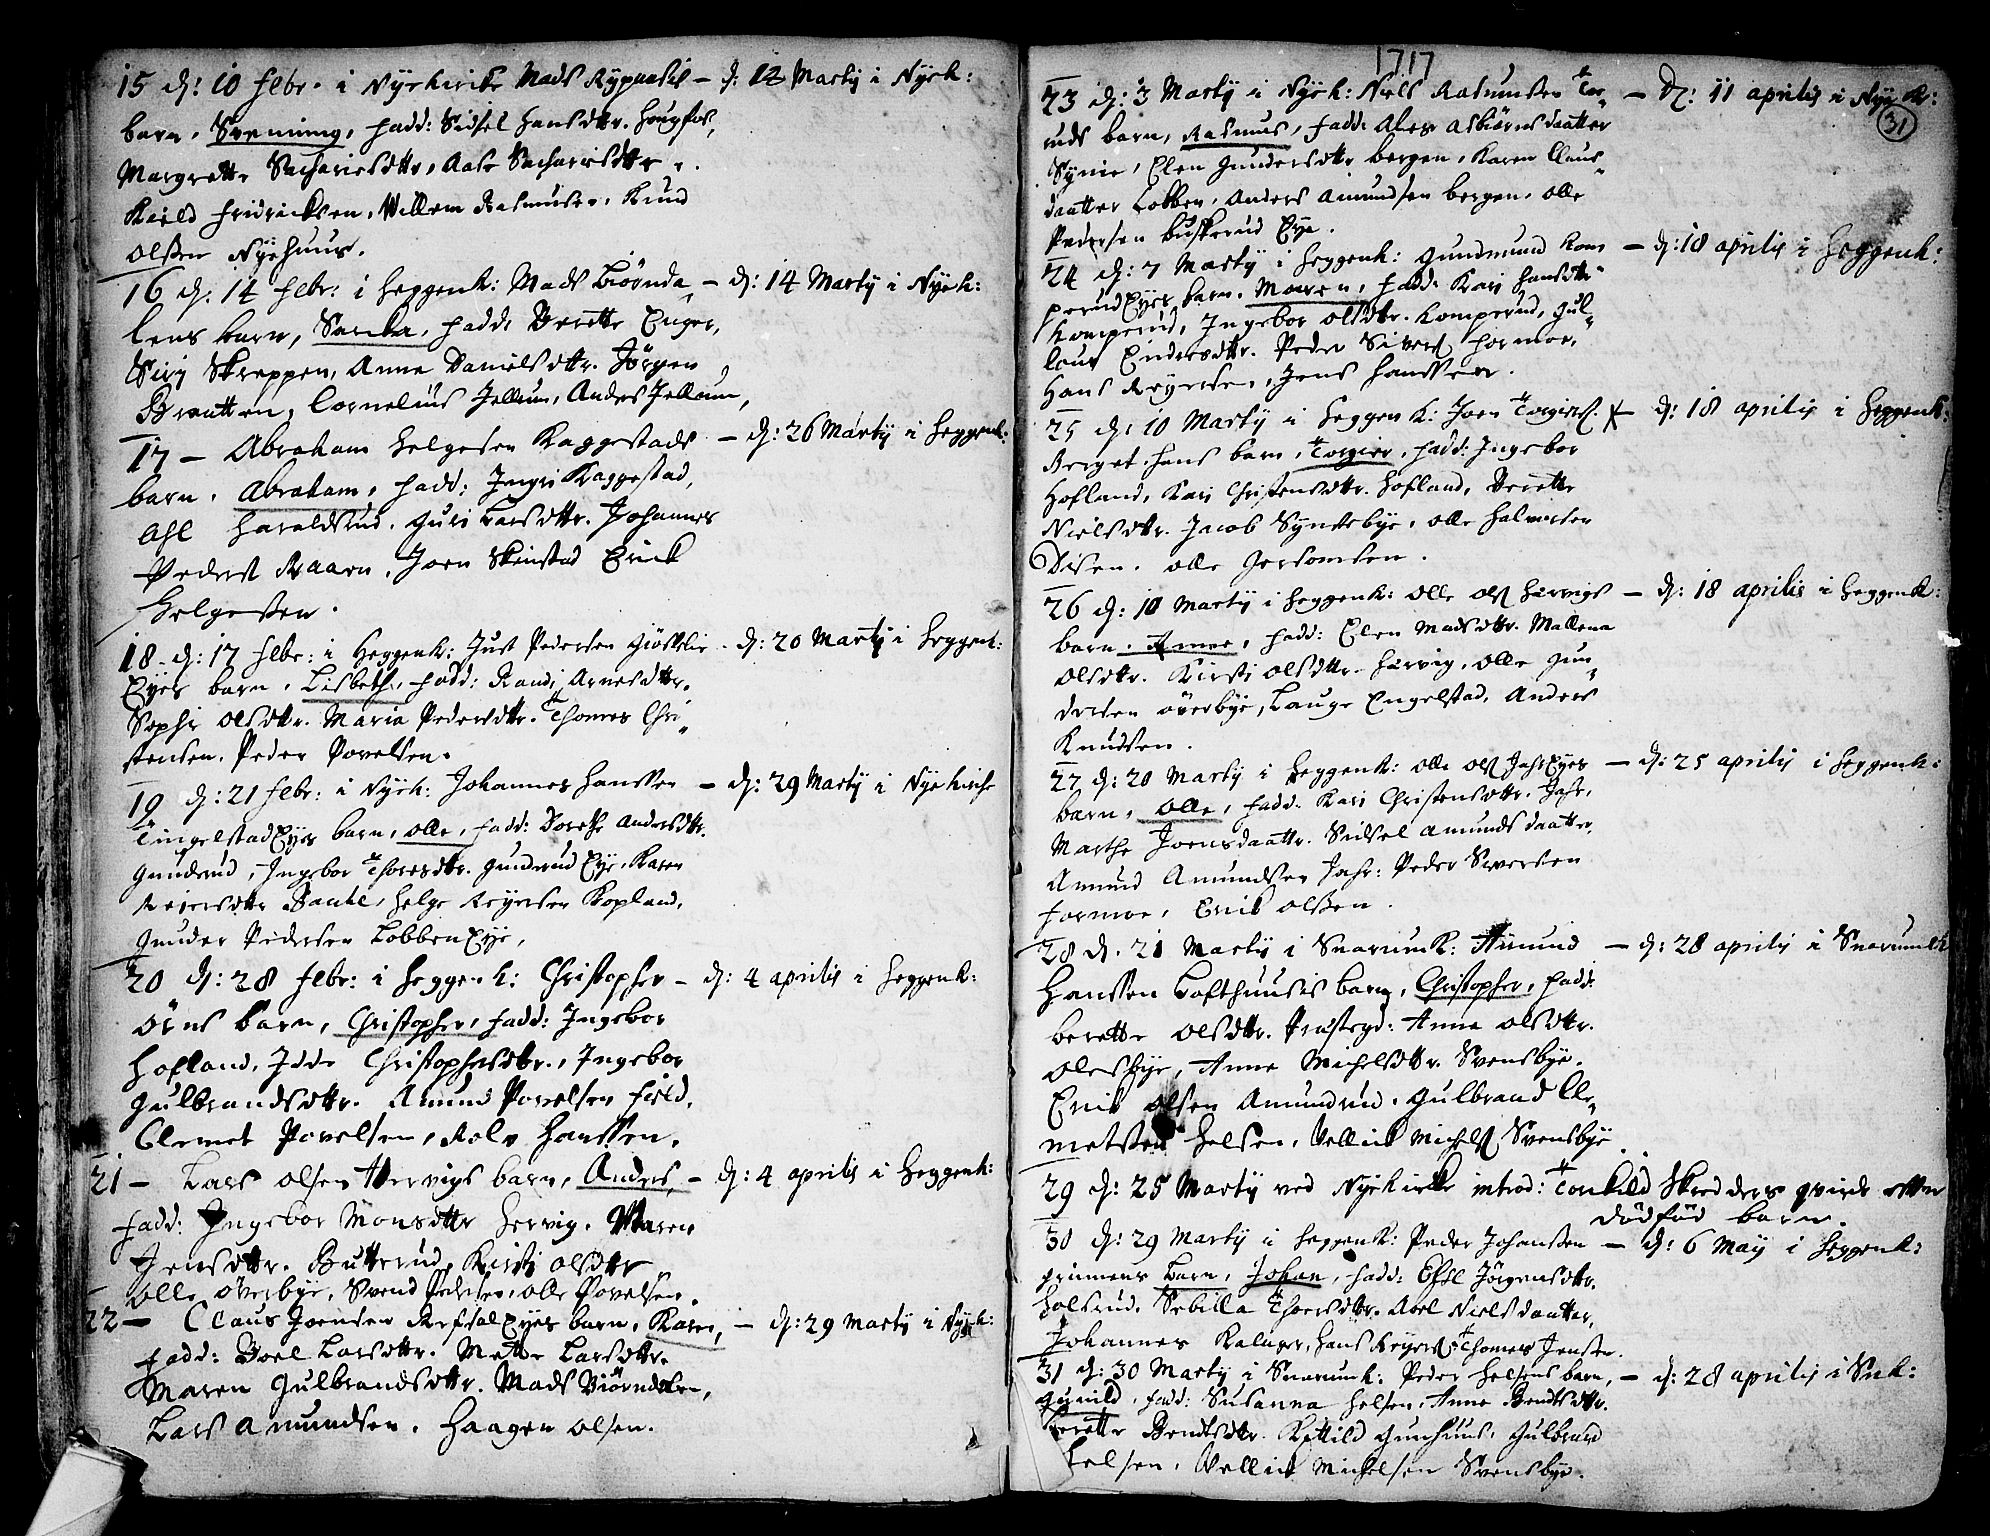 15 d: 10 febr. i Nyekircke Mads - d: 12 Marty i Nyek:
barn, Svening, fadd: Sidsel Hansdttr. Hougfos,
Margrette Sachariesdttr, Aase Sachariesdttr.
Kield Fridricksen, Villem Rasmusen, Knud
Olssen Nyehuus.
16 d: 14 febr: i Heggenk: Mads Biørnda- - d: 14 Marty i Nyek:
lens barn, fadd: Berette Enger,
Siri Skreppen, Anne Danielsdttr. Jörgen
Braatten, Cornelius Jellum, Anders Jellum,
17 - Abraham Helgesen Kaggestads - d: 26 Marty i Heggenk:
barn, Abraham, fadd: Ingri Kaggestad,
Ahl Haraldsrud, Guri Larsdttr. Johannes
Peders Kraarn, Joen Skinstad Erick
Helgessen.
18 - d: 17 febr: i Heggenk: Just Pedersen Giöslie - d: 20 Marty i Heggenk:
Eyes barn, Lisbeth, fadd: Randi Arnesdttr.
Sophi Olsdttr. Maria Pedersdttr. Thomes Chri
stensen, Peder Povelsen.
19 d: 21 febr: i Nyek: Johannes Hanssen - d: 29 Marty i Nyekirche
Tingelstad Eyes barn, Olle, fadd: Dorethe Andersdttr.
Gunderud, Ingebor Thoresdttr. Gunderud Eye, Karen
Reiersdttr Daahl, Helge Reyersen Kopland,
Gunder Pedersen Lobben Eye,
20 d: 28 febr: i Heggenk: Christopher - d: 4 aprilis i Heggenk:
Örns barn, Christopher, fadd: Ingebor
Hofland, Idde Christophersdttr., Ingebor
Gulbrandsdttr. Amund Povelsen Field,
Clemet Povelsen, Rolv Hanssen.
21 - Lars Olsen Hervigs barn, Anders, - d: 4 aprilis i Heggenk:
fadd: Ingebor Monsdttr Hervig. Maren
Jensdttr. Butterud, Kirsti Olsdttr
Olle Överbye, Svend Pedersen, Olle Povelsen.
22 - Claus Joensen Refsal Eyes barn, Karen, - d: 29 Marty i Nyek:
fadd: Boel Larsdttr. Mette Larsdttr.
Maren Gulbrandsdttr. Mads Biörndalen,
Lars Amundsen, Haagen Olsen.
1717
31
23 d: 3 Marty i Nyek: Niels Rasmussen Tor- - D: 11 aprilis i Nye K:
ruds barn, Rasmus, fadd: Ales Asbiörnsdaatter
Synie, Elen Gundersdttr Bergen, Karen Claus
daatter Lobben, Anders Amundsen Bergen, Olle
Pedersen Buskerud Eye.
24 d: 7 Marty i Heggenk: Gundmund Kom - d: 18 aprilis i Heggenk:
perud Eyes barn, Maren, fadd: Kari Hansdttr
Komperud, Ingebor Olsdttr. Komperud, Gul-
laug Endersdttr. Peder Sivers Formoe,
Hans Reyersen, Jens Hanssen.
25 d: 10 Marty i Heggenk: Joen Torgiers. - d: 18 aprilis i Heggenk:
Berget hans barn, Torgier, fadd: Ingebor
Hofland, Kari Christensdttr. Hofland, Berette
Nielsdttr. Jacob Syndebye, Olle Halvorsen
Disen, Olle Gersomsen.
26 d: 10 Marty i Heggenk: Olle Ols Hervigs - d: 18 aprilis i Heggenk:
barn, Anne, fadd: Elen Madsdttr. Mallena
Olsdttr. Kirsti Olsdttr. Hervig, Olle Gun-
dersen Överbye, Lauge Engelstad, Anders
Knudsen.
27 d: 20 Marty i Heggenk: Olle Ols Jahr Eyes - d: 25 aprilis i Heggenk:
barn, Olle, fadd: Kari Christensdttr. Jahr,
Marthe Joensdaattr. Sidsel Amundsdaatter,
Amund Amundsen Jahr: Peder Sivertsen
Formoe, Erik Olssen.
28 d. 21 Marty i Snarumk: Amund - d: 28 aprilis i Snarumk
Hanssen Lofthuusis barn, Christopher, fadd:
Berette Olsdttr. Anne Olsdttr.
Olesbye, Anne Michelsdttr. Svensbye,
Erik Olsen Amundrud, Gulbrand Cle-
metsen Helsen, Vellick Michels Svensbye
29 d: 25 Marty ved Nyekircke introd: Torkild Skredders qvinde efter
dödföd barn.
30 d: 29 Marty i Heggenk: Peder Johansen - d: 6 May i Heggenk:
barn, Johan, fadd: Jörgensdttr.
Holsrud, Sebilla Thoersdttr. Abel Nielsdaatter,
Johannes Hans Reyers, Thomes Jensen.
31 d: 30 Marty i Snarumk: Peder Helsens barn, - d: 28 aprilis i Snk:
Gunild, fadd: Susanna Helsen, Anne Bendtsdttr.
Berette Bendtsdttr. Kittild Gunhuus, Gulbrand
Helsen, Vellick Michelsen Svensbye.